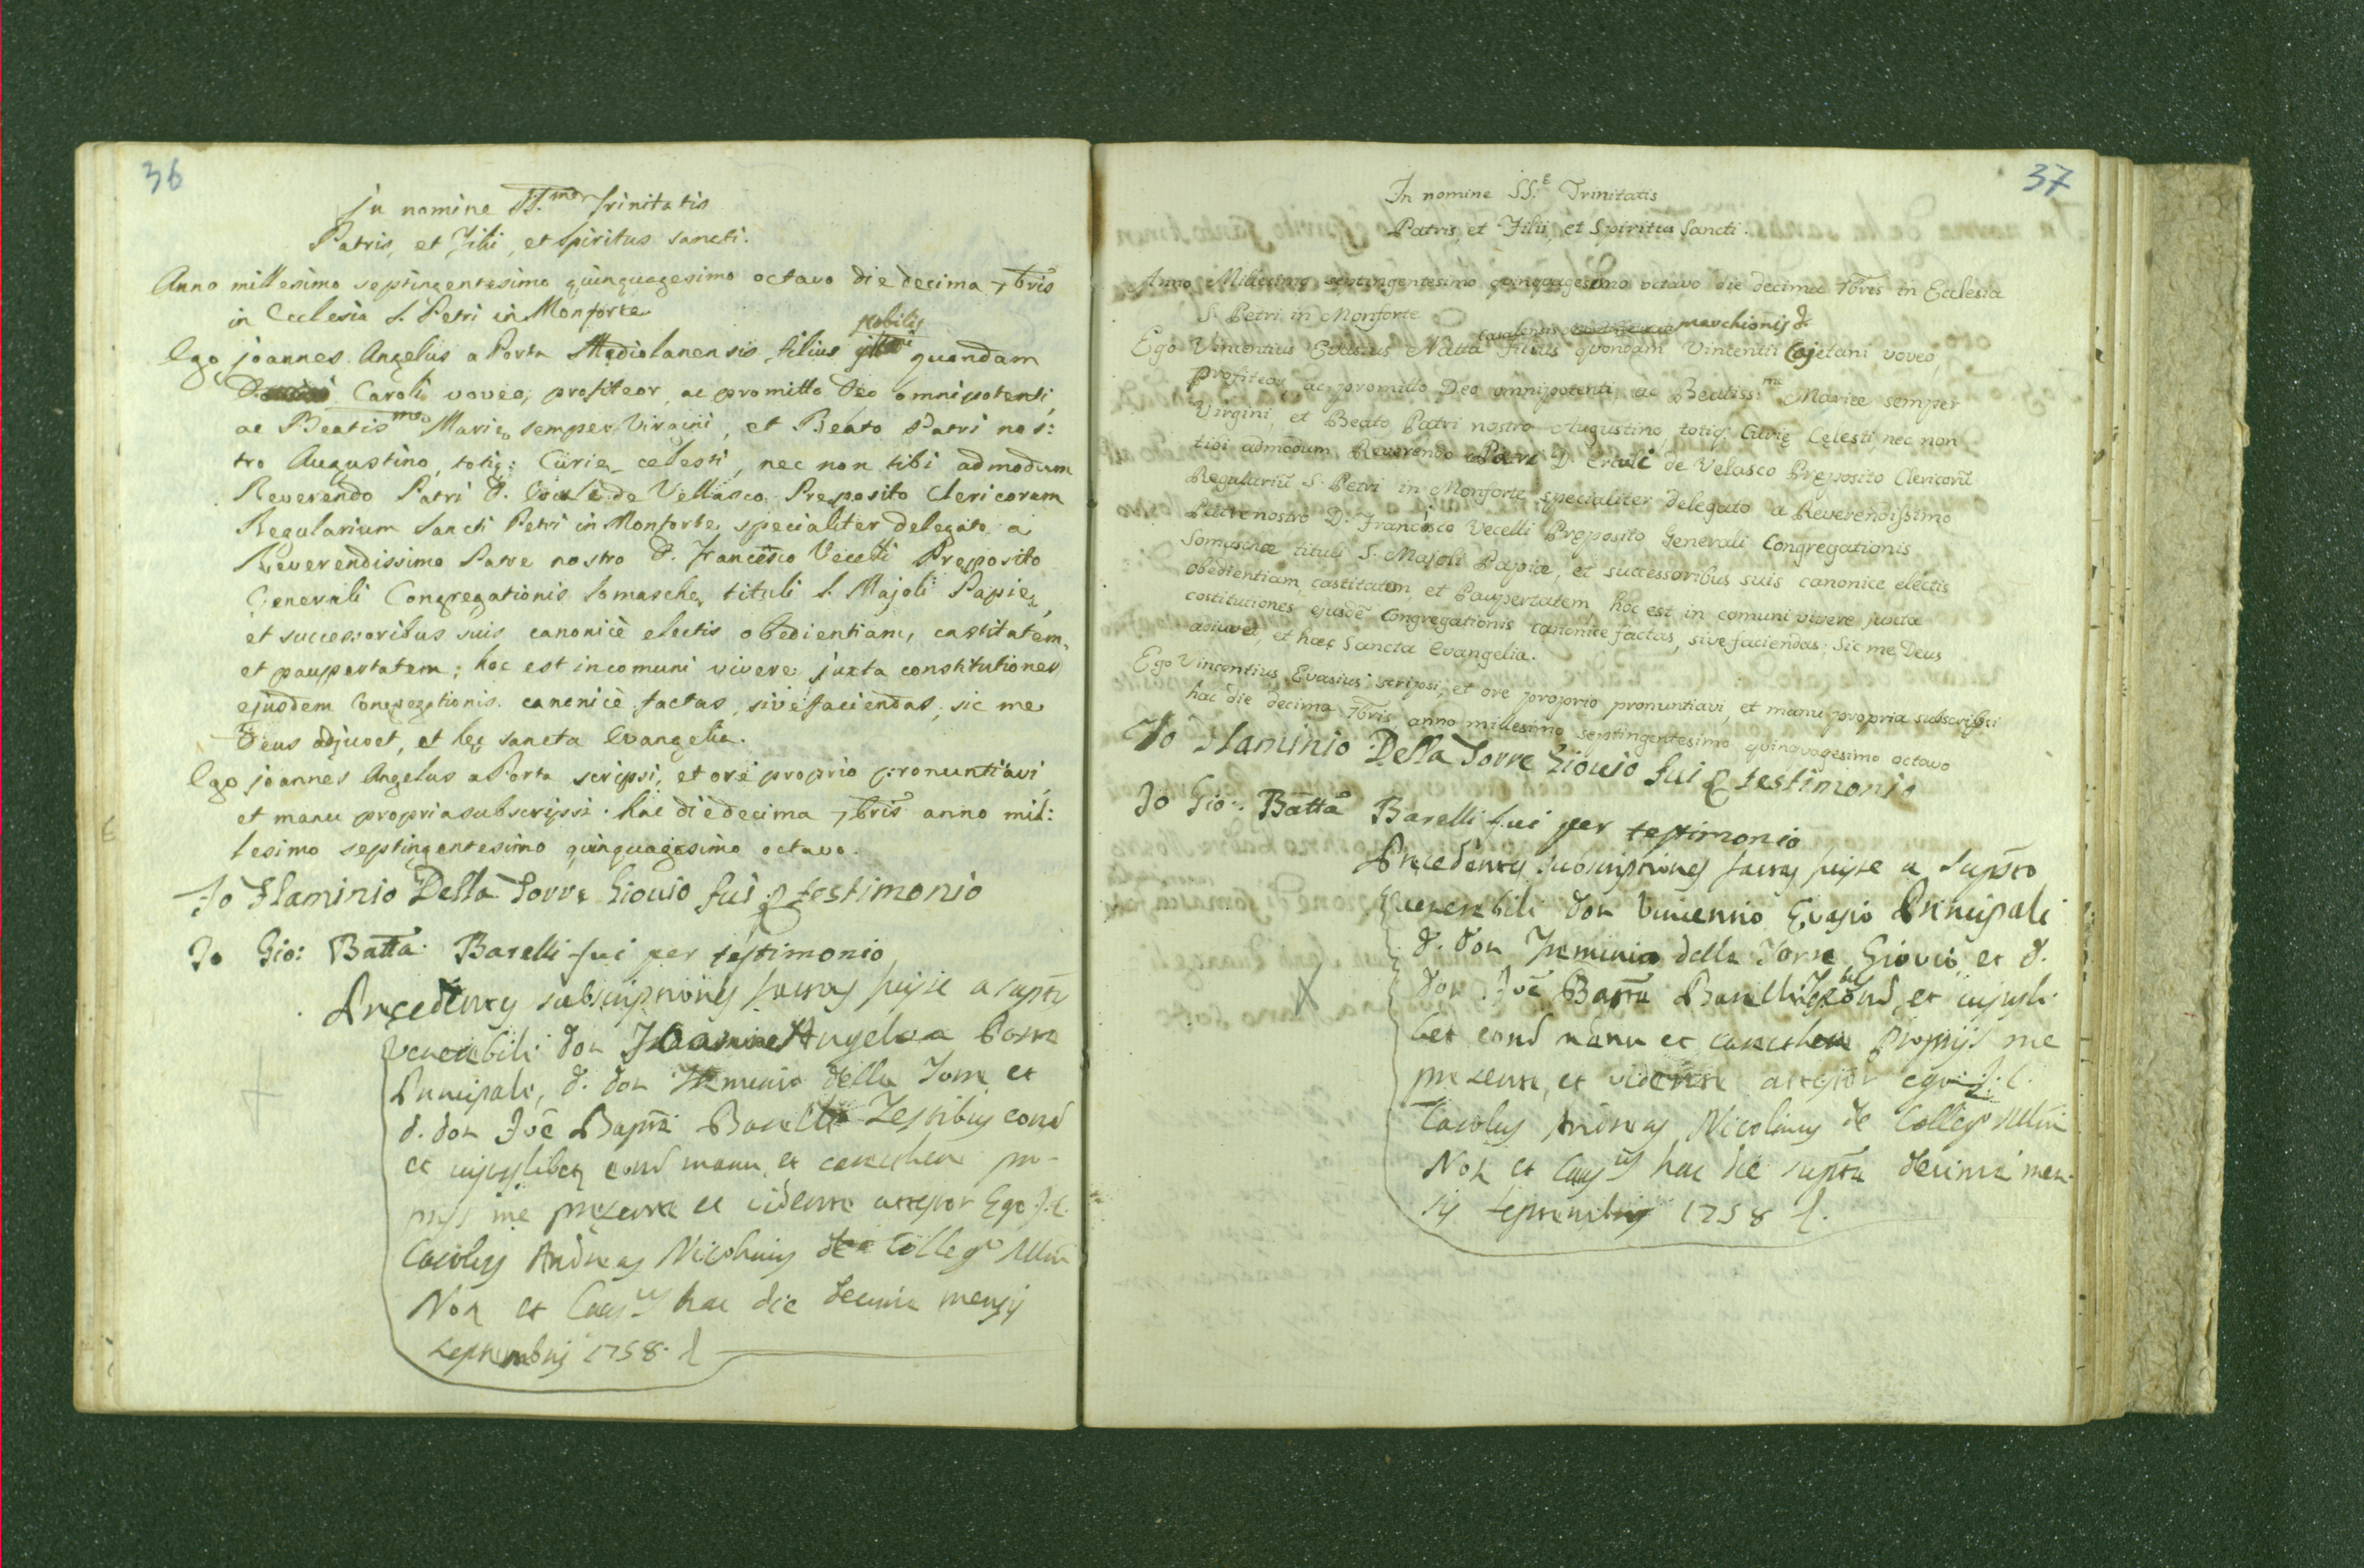 36
In nomine SS.mæ Trinitatis
Patris, et Filii, et Spiritus sancti.
Anno millesimo septingentesimo quinquagesimo octavo die decima 7bris
in Ecclesia S. Petri in Monforte
nobilis
Ego joannes Angelus a Porta Mediolanensis filius quondam
D. Caroli voveo, profiteor, ac promitto Deo omnipotenti,
ac Beatismæ Mariæ semper Virgini, et Beato Patri nos:
tro Augustino, totiq: Curiæ celesti, nec non tibi admodum
Reverendo Patri D. Erculi de Vellasco Preposito Clericorum
Regularium Sancti Petri in Monforte specialiter delegato a
Reverendissimo Patre nostro D. Francisco Vecelli Preposito
Generali Congregationis Somaschæ tituli S. Majoli Papiæ,
et successoribus suis canonicè electis obedientiam, castitatem,
et paupertatem; hoc est in comuni vivere juxta constitutiones
ejusdem Congregationis canonicè factas, sive faciendas, sic me
Deus adjuvet, et hec sancta Evangelia.
Ego joannes Angelus a Porta scripsi, et ore proprio pronuntiavi,
et manu propria subscripsi hac die decima 7bris anno mil:
lesimo septingentesimo quinquagesimo octavo.
Io Flaminio Della Torre Giouio fui p testimonio
Io Gio: Batta Barelli fui per testimonio
Precedentes subscriptiones factas fuisse a supto
Venerabili Don Joanne Angelo a Porta
Principali, D. Don Flaminio della Torre et
D. Don Joe Bapta Barelli Testibus eond
et cujuslibet eond manu, et carathere pro-
prijs me presente et vidente attestor Ego J. C.
Carolus Andreas Nicolinus de Collego Mlni
Not et Causus hac die decima mensis
septembris 1758
37
In nomine SS.E Trinitatis
Patris, et Filii, et Spiritus Sancti.
Anno Milesimo septingentesimo quinquagesimo octavo die decima 7bris in Ecclesia
S. Petri in Monforte
Casalensis marchionis D.
Ego Vincentius Evasius Natta filius quondam Vincentii Cajetani, voveo,
profiteor, ac promitto Deo omnipotenti, ac Beatiss:mæ Mariæ semper
Virgini, et Beato Patri nostro Augustino, totiq. Curię Celesti, nec non
tibi admodum Reverendo Patri D. Erculi de Velasco Pręposito Clericorū
Regulariū S. Petri in Monforte specialiter delegato a Reverendissimo
Patre nostro D. Francisco Vecelli Pręposito Generali Congregationis
Somaschæ tituli S. Majoli Papiæ, et successoribus suis canonice electis
obedientiam, castitatem, et Paupertatem, hoc est in comuni vivere juxta
costitutiones ejusdē Congregationis canonice factas, sive faciendas; Sic me Deus
adiuvet, et hæc Sancta Evangelia.
Ego Vincentius Evasius scripsi, et ore proprio pronuntiavi, et manu propria subscripsi
hac die decima 7bris anno millesimo septingentesimo quinquagesimo octavo
Io Flaminio Della Torre Giouio fui p testimonio
Io Gio: Batta Barelli fui per testimonio
Precedentes subscriptiones factas fuisse a supto
Venerabili Don Vincentio Evasio Principali
D. Don Flaminio della Torre Giovio et D.
Don Joe Bapta Barelli Tesbus eond, et cujusli-
bet eond manu et carathere proprijs me
presente, et vidente attestor ego J. C.
Carolus Andreas Nicolinus de Collego Mlni
Not et Causus hac die supta decima men-
sis septembris 1758